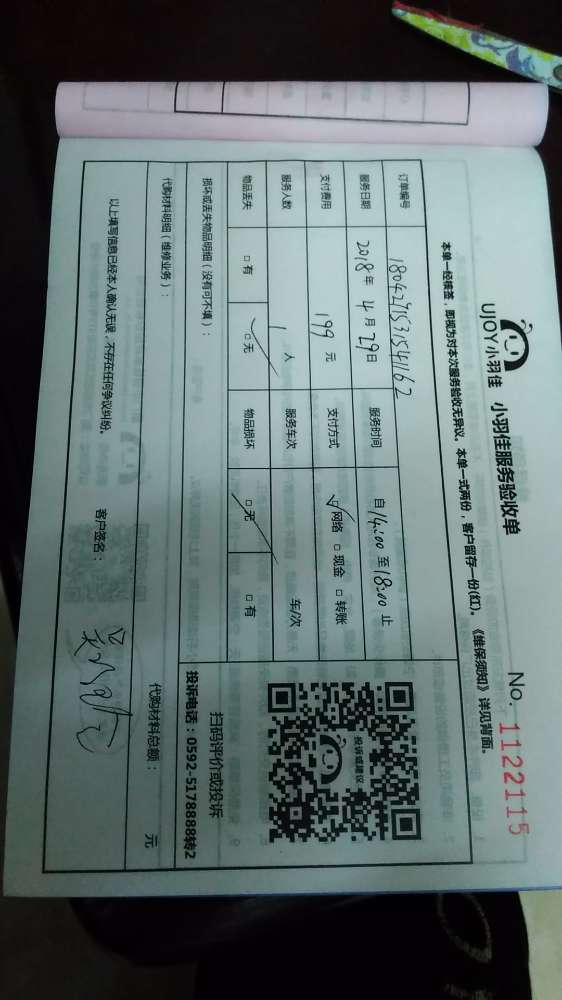 UJOY小羽佳 小羽佳服务验收单
No. 1122115
本单一经核签，即视为对本次服务验收无异议。本单一式两份，客户留存一份(红)。《维保须知》详见背面。
订单编号 1804291531541162
服务日期 2018年4月29日 服务时间 自14:00至18:00止
支付费用 199元 支付方式 ☑网络 □现金 □转账
服务人数 1人 服务车次 车/次
物品丢失 □有 ☑无 物品损坏 ☑无 □有
投诉或建议
扫码评价或投诉
投诉电话：0592-5178888转2
损坏或丢失物品明细（没有可不填）：
代购材料明细（维修业务）：
代购材料总额： 元
以上填写信息已经本人确认无误，不存在任何争议纠纷。
客户签名：